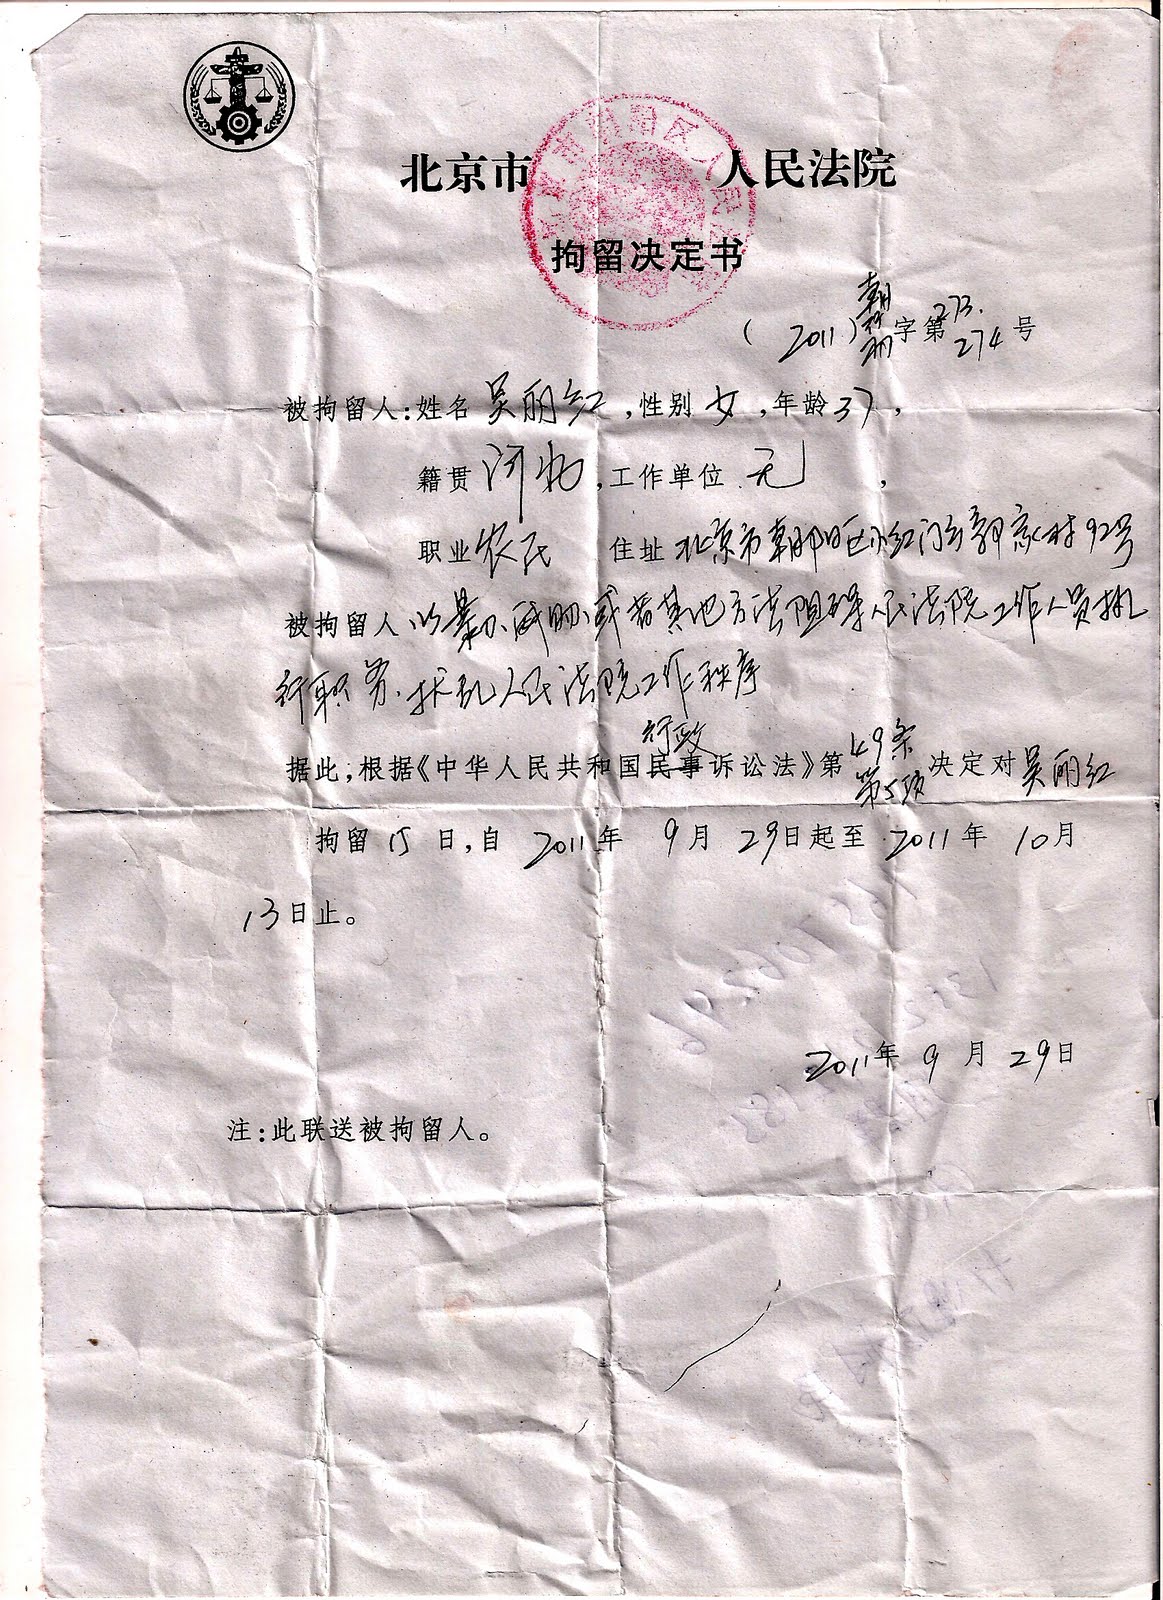 北京市 人民法院
拘留决定书
(2011)朝 字第273.274号
被拘留人:姓名 吴丽红,性别 女,年龄37,
籍贯 河北,工作单位 无,
职业 农民 住址 北京市朝阳区小红门乡郭家村92号
被拘留人 以暴力、威胁或者其他方法阻碍人民法院工作人员执
行职务、扰乱人民法院工作秩序
行政
据此,根据《中华人民共和国民事诉讼法》第49条第5项决定对吴丽红
拘留15日,自2011年9月29日起至2011年10月
13日止。
2011年9月29日
注:此联送被拘留人。